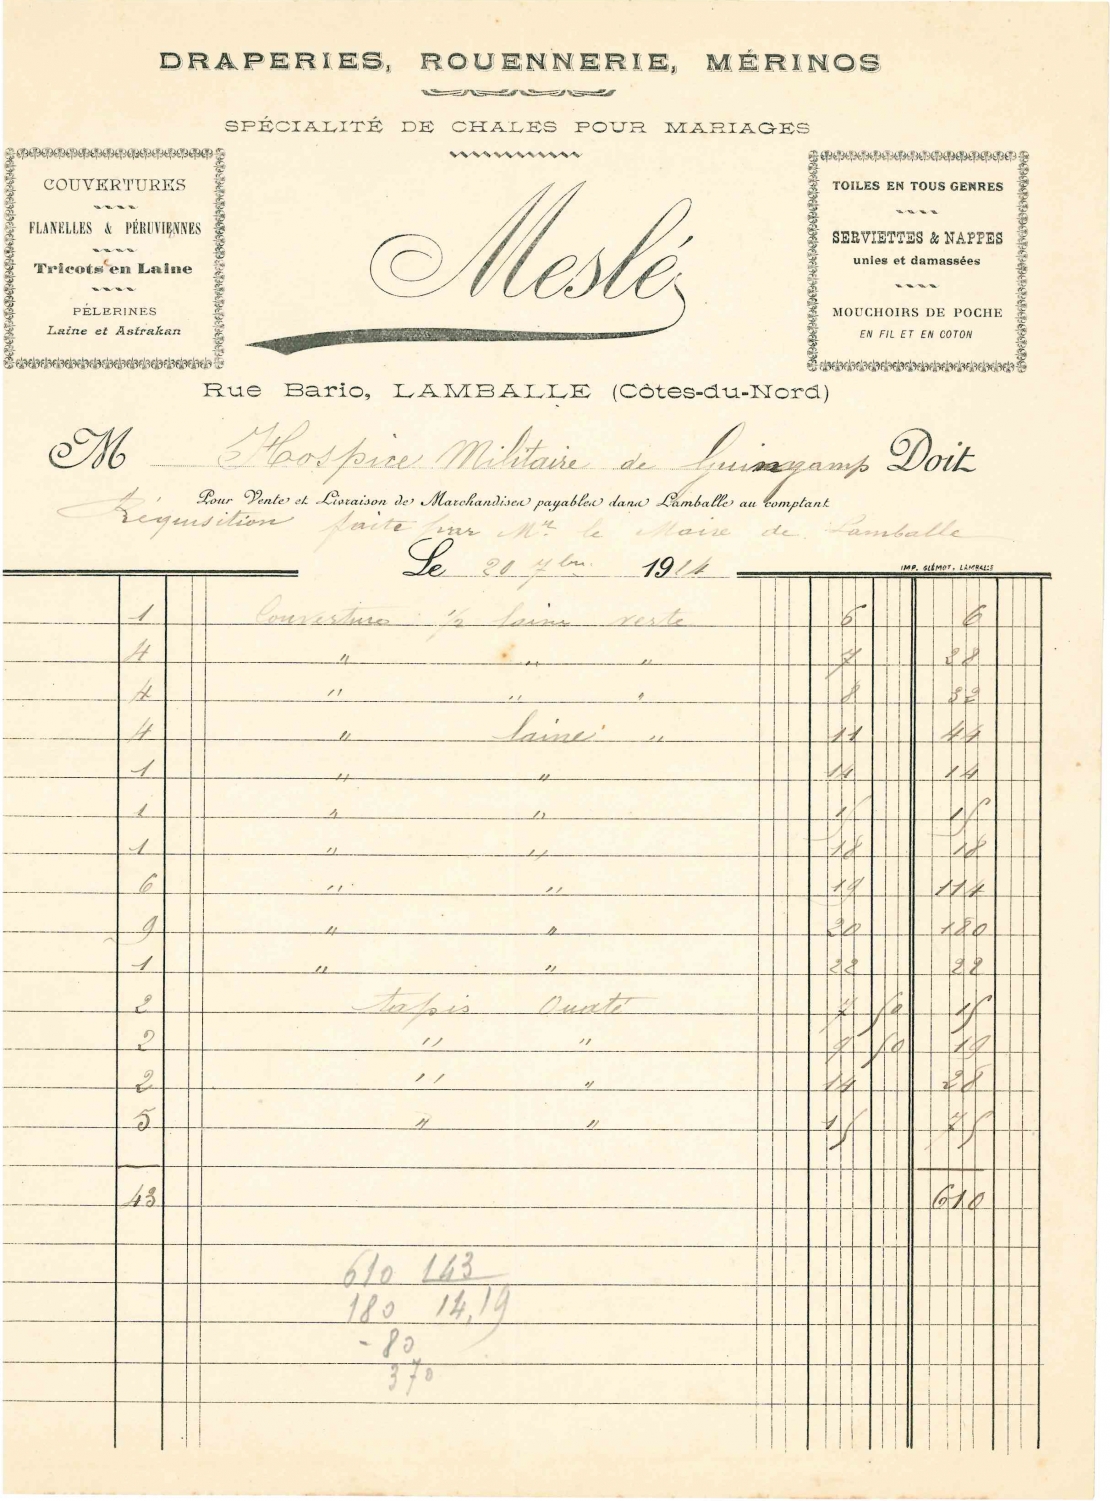 DRAPERIES, ROUENNERIE, MÉRINOS
SPÉCIALITÉ DE CHALES POUR MARIAGES
COUVERTURES
FLANELLES & PÉRUVIENNES
Tricots en Laine
PÉLERINES
Laine et Astrakan
Meslé
TOILES EN TOUS GENRES
SERVIETTES & NAPPES
unies et damassées
MOUCHOIRS DE POCHE
EN FIL ET EN COTON
Rue Bario, LAMBALLE (Côtes-du-Nord)
M Hospice Militaire de Guingamp Doit
Pour Vente et Livraison de Marchandises payables dans Lamballe au comptant
Réquisition faite par Mr le Maire de Lamballe
Le 20 7bre 1914
IMP. GLÉMOT, LAMBALLE
1 Couverture 1/2 laine verte 6 6
4 " " " 7 28
4 " " " 8 32
4 " laine " 11 44
1 " " 14 14
1 " " 15 15
1 " " 18 18
6 " " 19 114
9 " " 20 180
1 " " 22 22
2 tapis Ouaté 7 50 15
2 " " 9 50 19
2 " " 14 28
5 " " 15 75
43 610
610 43
180 14,19
- 80
370